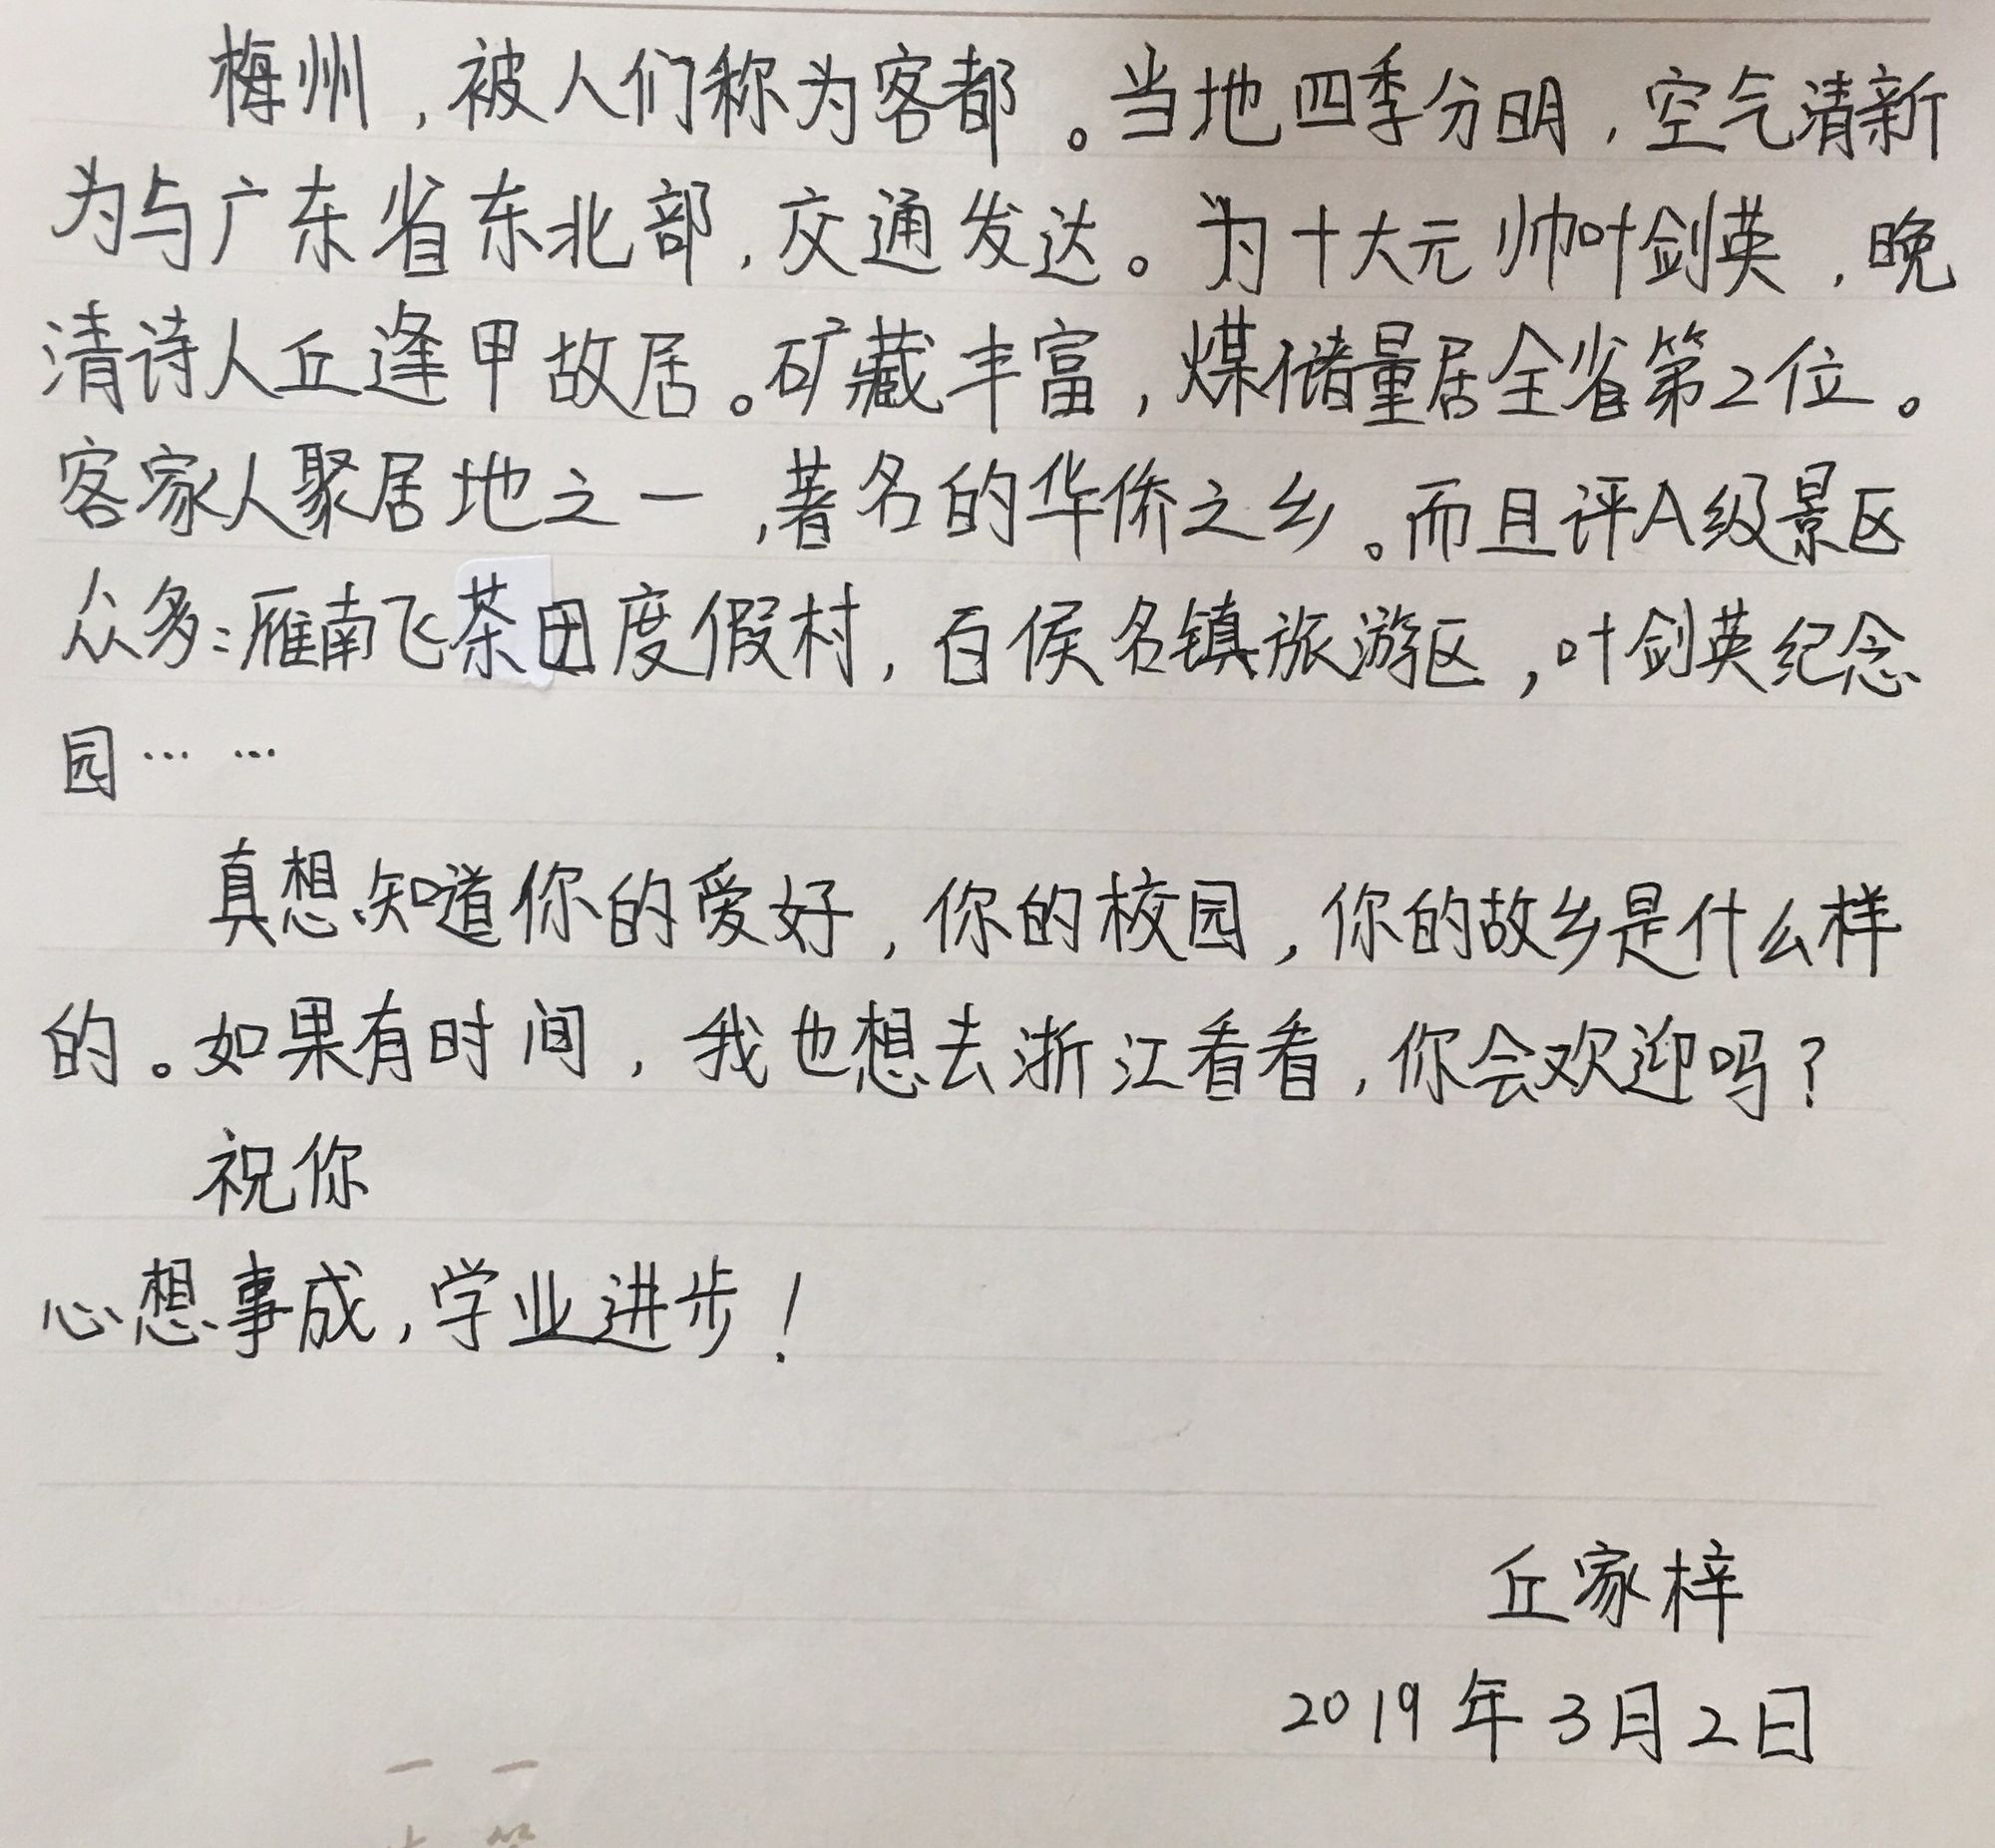 梅州，被人们称为客都。当地四季分明，空气清新
为与广东省东北部，交通发达。为十大元帅叶剑英，晚
清诗人丘逢甲故居。矿藏丰富，煤储量居全省第2位。
客家人聚居地之一，著名的华侨之乡。而且评A级景区
众多：雁南飞茶田度假村，百侯名镇旅游区，叶剑英纪念
园……
真想知道你的爱好，你的校园，你的故乡是什么样
的。如果有时间，我也想去浙江看看，你会欢迎吗？
祝你
心想事成，学业进步！
丘家梓
2019年3月2日